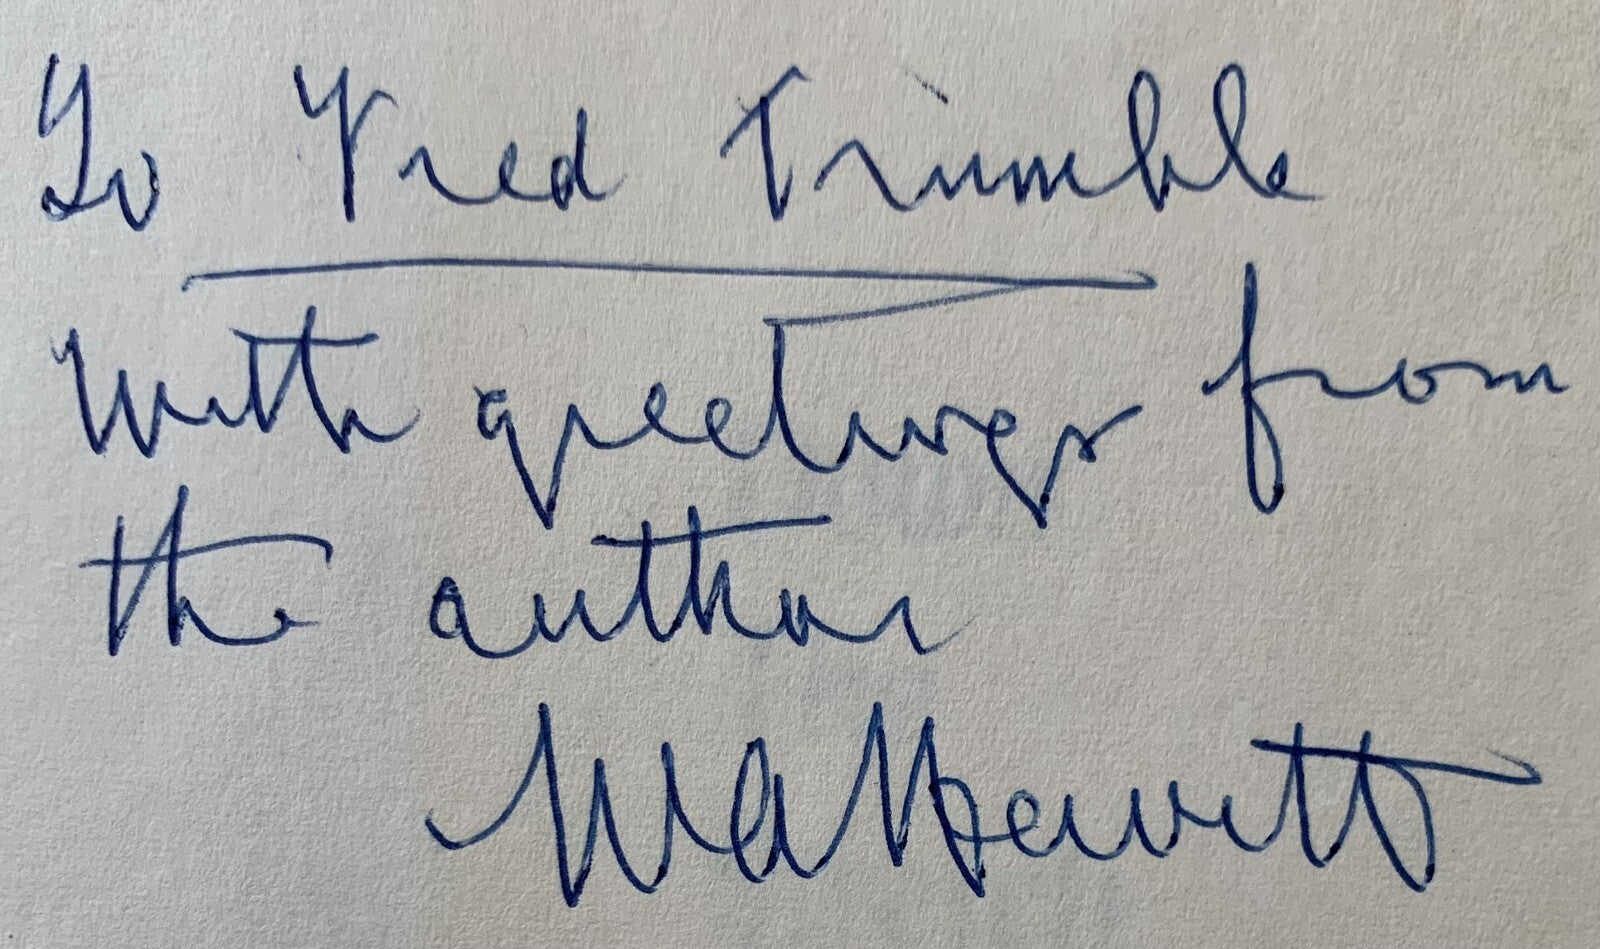 To Fred Trimble
With greetings from
the author
W A Hewitt